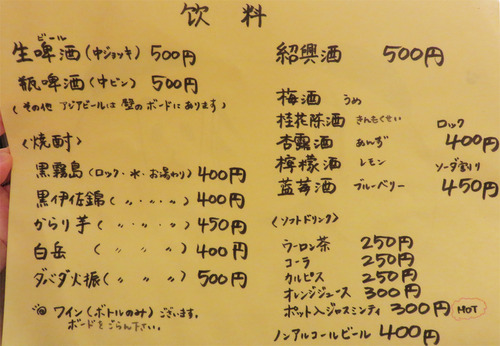 饮料
ビール
生啤酒(中ジョッキ) 500円
瓶啤酒(中ビン) 500円
(その他 アジアビールは 壁のボードにあります)
〈焼酎〉
黒霧島(ロック・水・お湯わり) 400円
黒伊佐錦(〃・〃・〃) 400円
からり芋(〃 〃 〃) 450円
白岳(〃 〃 〃) 400円
ダバダ火振(〃 〃 〃) 500円
◎ ワイン(ボトルのみ)ございます。
ボードをごらん下さい。
紹興酒 500円
梅酒 うめ
桂花陈酒 きんもくせい ロック
杏露酒 あんず 400円
檸檬酒 レモン ソーダ割り
蓝莓酒 ブルーベリー 450円
〈ソフトドリンク〉
ウーロン茶 250円
コーラ 250円
カルピス 250円
オレンジジュース 300円
ポット入ジャスミンティ 300円 HOT
ノンアルコールビール 400円